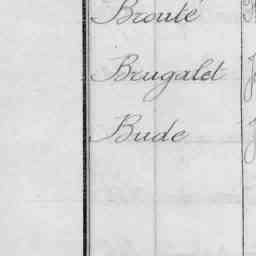 Brouté
Brugalet
Bude